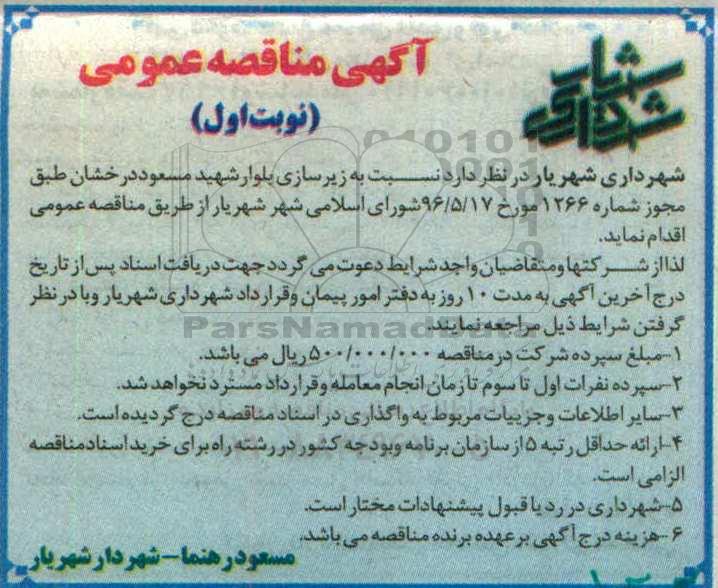 شهرداری شهریار
آگهی مناقصه عمومی
(نوبت اول)
شهرداری شهریار در نظر دارد نسبت به زیرسازی بلوار شهید مسعود درخشان طبق
مجوز شماره ۱۲۶۶ مورخ ۹۶/۵/۱۷ شورای اسلامی شهر شهریار از طریق مناقصه عمومی
اقدام نماید.
لذا از شرکتها و متقاضیان واجد شرایط دعوت می گردد جهت دریافت اسناد پس از تاریخ
درج آخرین آگهی به مدت ۱۰ روز به دفتر امور پیمان و قرارداد شهرداری شهریار و با در نظر
گرفتن شرایط ذیل مراجعه نمایند.
ParsNamadData
۱-مبلغ سپرده شرکت در مناقصه ۵۰۰/۰۰۰/۰۰۰ ریال می باشد.
۲-سپرده نفرات اول تا سوم تا زمان انجام معامله و قرارداد مسترد نخواهد شد.
۳-سایر اطلاعات و جزییات مربوط به واگذاری در اسناد مناقصه درج گردیده است.
۴-ارائه حداقل رتبه ۵ از سازمان برنامه و بودجه کشور در رشته راه برای خرید اسناد مناقصه
الزامی است.
۵-شهرداری در رد یا قبول پیشنهادات مختار است.
۶-هزینه درج آگهی بر عهده برنده مناقصه می باشد.
مسعود رهنما-شهردار شهریار